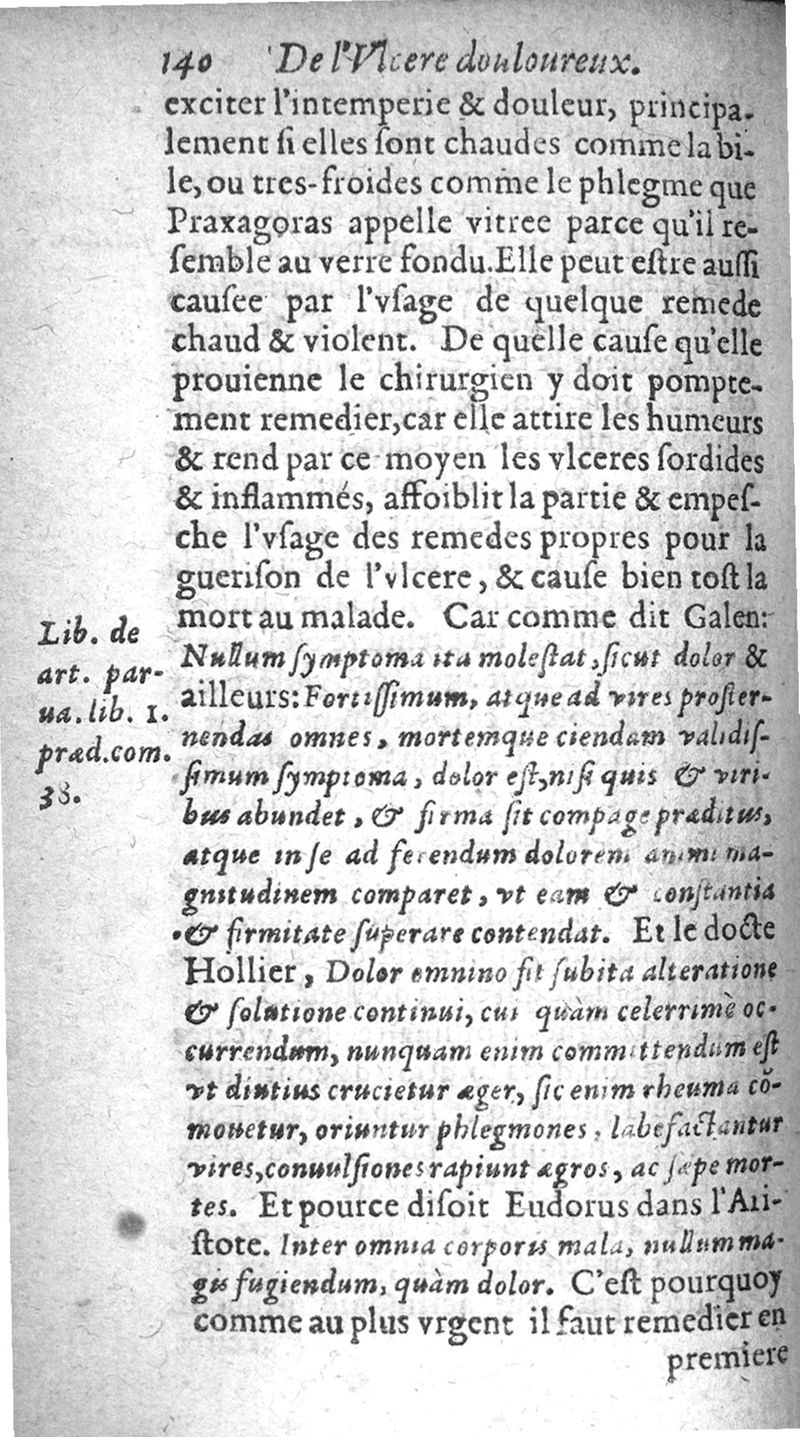 140 De l'Vlcere douloureux.
exciter l'intemperie & douleur, principa-
lement ſi elles ſont chaudes comme la bi-
le, ou tres-froides comme le phlegme que
Praxagoras appelle vitree parce qu'il re-
ſemble au verre fondu. Elle peut eſtre auſſi
cauſee par l'vſage de quelque remede
chaud & violent. De quelle cauſe qu'elle
prouienne le chirurgien y doit pompte-
ment remedier, car elle attire les humeurs
& rend par ce moyen les vlceres ſordides
& inflammés, affoiblit la partie & empeſ-
che l'vſage des remedes propres pour la
gueriſon de l'vlcere, & cauſe bien toſt la
mort au malade. Car comme dit Galen:
Nullum ſymptoma ita moleſtat, ſicut dolor &
ailleurs: Fortiſſimum, atque ad vires proſter-
nendas omnes, mortemque ciendam validiſ-
ſimum ſymptoma, dolor eſt, niſi quis & viri-
bus abundet, & firma ſit compage præditus,
atque in ſe ad ferendum dolorem animi ma-
gnitudinem comparet, vt eam & conſtantia
& firmitate ſuperare contendat. Et le docte
Hollier, Dolor omnino fit ſubita alteratione
& ſolutione continui, cui quàm celerrimè oc-
currendum, nunquam enim committendum eſt
vt diutius crucietur æger, ſic enim rheuma cõ-
mouetur, oriuntur phlegmones, labefactantur
vires, conuulſiones rapiunt ægros, ac ſæpe mor-
tes. Et pource diſoit Eudorus dans l'Ari-
ſtote. Inter omnia corporis mala, nullum ma-
gis fugiendum, quàm dolor. C'eſt pourquoy
comme au plus vrgent il faut remedier en
premiere
Lib. de
art. par-
ua. lib. 1.
præd. com.
38.